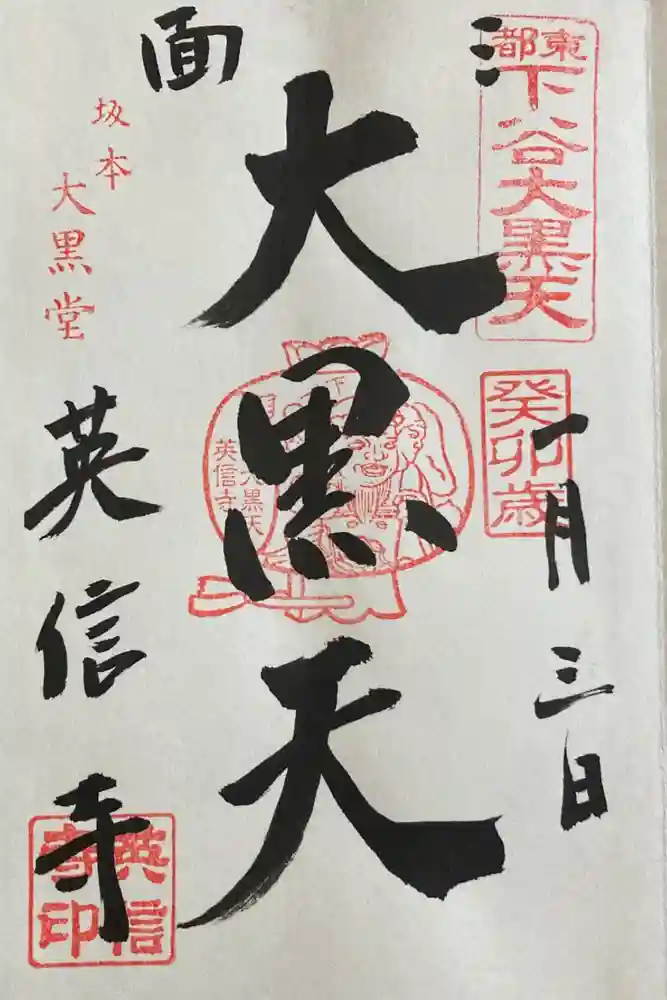 東都
下谷大黒天
癸卯歳
一月三日
三面
大黒天
英信寺
大黒天
坂本
大黒堂
英信寺
英信寺印